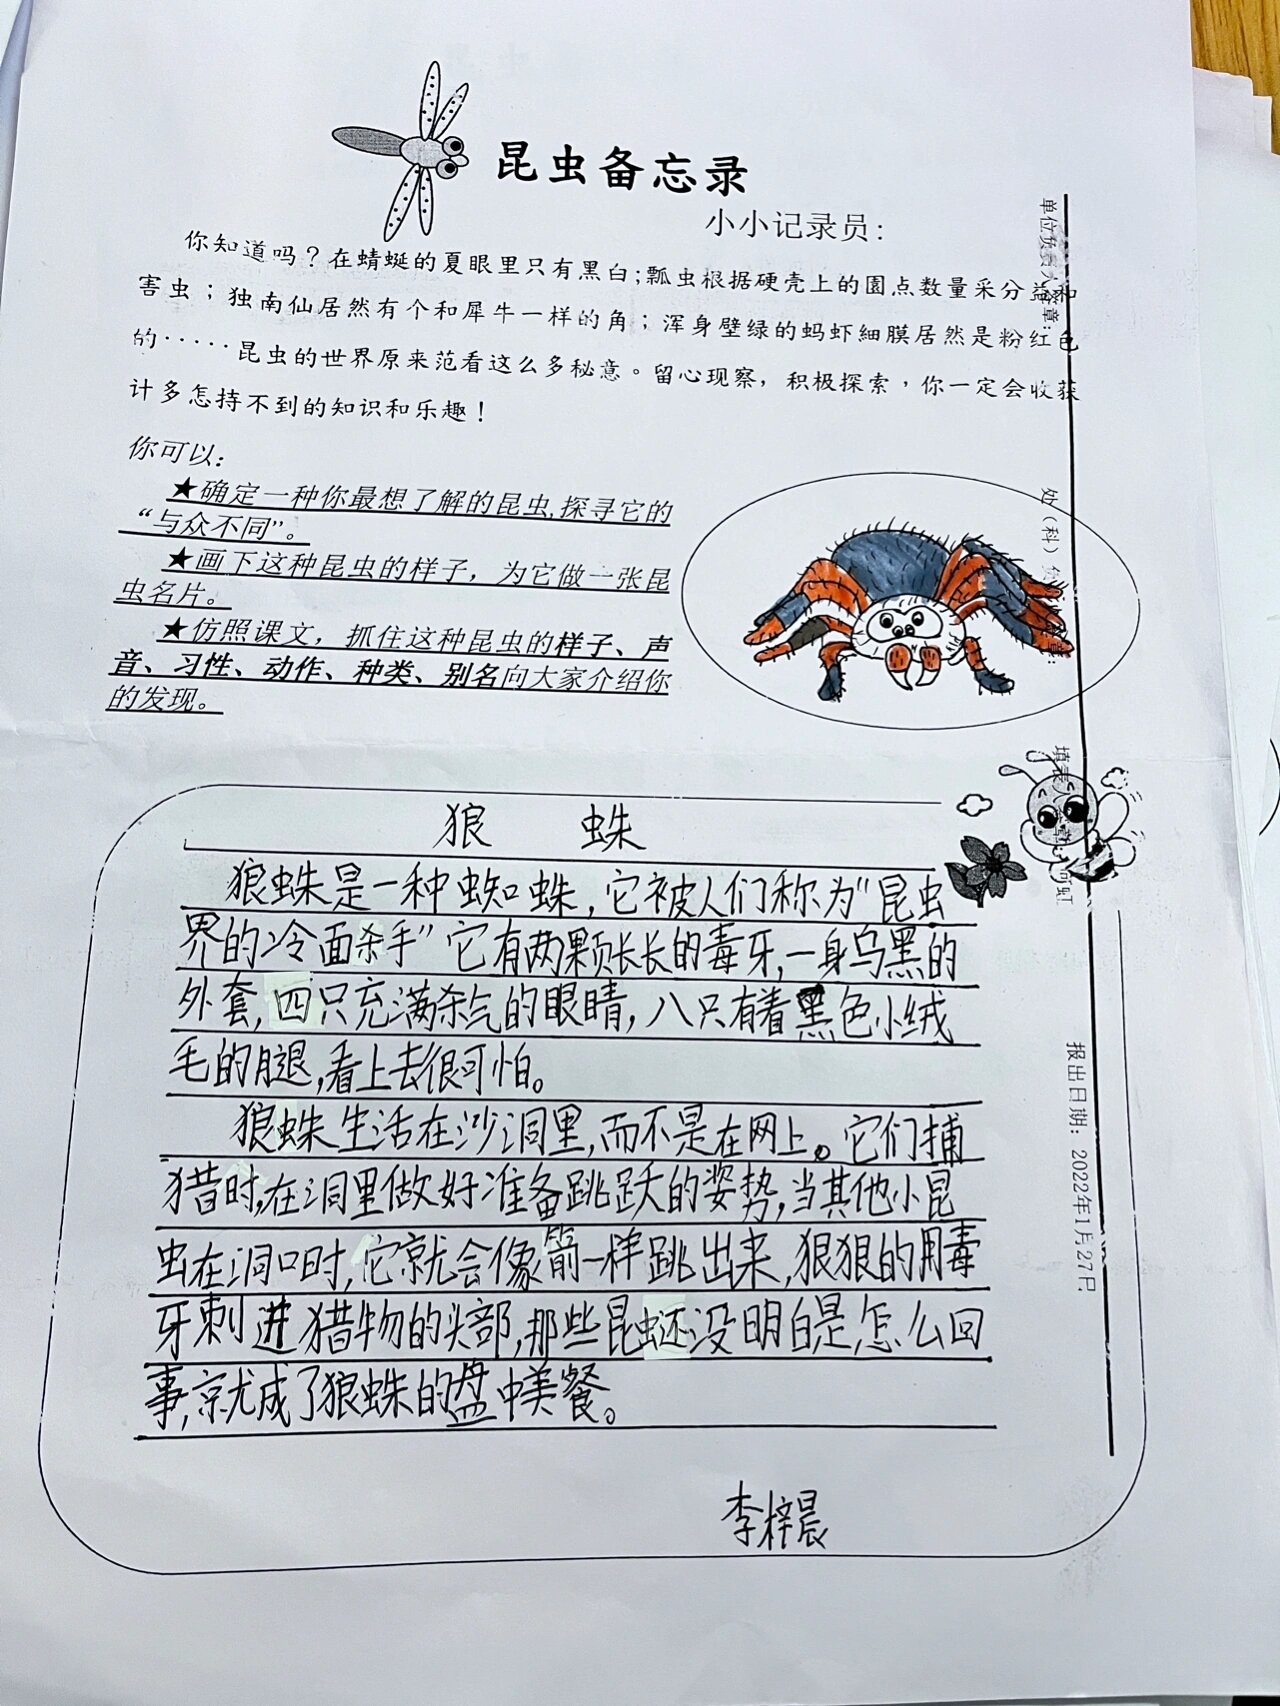 昆虫备忘录
小小记录员：
你知道吗？在蜻蜒的夏眼里只有黑白；瓢虫根据硬壳上的圆点数量采分益和
害虫；独南仙居然有个和犀牛一样的角；浑身壁绿的蚂虾細膜居然是粉红色
的·····昆虫的世界原来范看这么多秘意。留心现察，积极探索，你一定会收获
计多怎持不到的知识和乐趣！
你可以：
★确定一种你最想了解的昆虫,探寻它的
“与众不同”。
★画下这种昆虫的样子，为它做一张昆
虫名片。
★仿照课文，抓住这种昆虫的样子、声
音、习性、动作、种类、别名向大家介绍你
的发现。
狼 蛛
狼蛛是一种蜘蛛，它被人们称为“昆虫
界的冷面杀手”它有两颗长长的毒牙，一身乌黑的
外套，四只充满杀气的眼睛，八只有着黑色小绒
毛的腿，看上去很可怕。
狼蛛生活在沙洞里，而不是在网上。它们捕
猎时，在洞里做好准备跳跃的姿势，当其他小昆
虫在洞口时，它就会像箭一样跳出来，狠狠的用毒
牙刺进猎物的头部，那些昆虫还没明白是怎么回
事，就成了狼蛛的盘中美餐。
李梓晨
单位负责人
章：
处（科）
章：
填表
报出日期：2022年1月27日